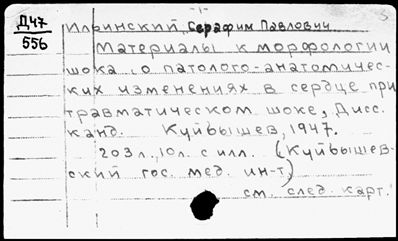 Д47
556
Ильинский, Серафим Павлович
Материалы к морфологии
шока. О патолого-анатомичес-
ких изменениях в сердце при
травматическом шоке, Дисс.
канд. Куйбышев, 1947.
203л., 10л. с илл. (Куйбышев-
ский гос. мед. ин-т)
см. след. карт.